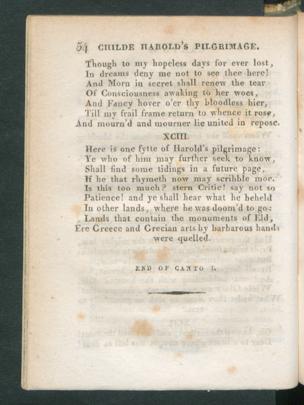 54 CHILDE HAROLD'S PILGRIMAGE.
Though to my hopeless days for ever lost,
In dreams deny me not to see thee here!
And Morn in secret shall renew the tear
Of Consciousness awaking to her woes,
And Fancy hover o'er thy bloodless bier,
Till my frail frame return to whence it rose,
And mourn'd and mourner lie united in repose.
XCIII.
Here is one fytte of Harold's pilgrimage:
Ye who of him may further seek to know,
Shall find some tidings in a future page,
If he that rhymeth now may scribble moe.
Is this too much? stern Critic! say not so
Patience! and ye shall hear what he beheld
In other lands, where he was doom'd to go:
Lands that contain the monuments of Eld,
Ere Greece and Grecian arts by barbarous hands
were quelled.
END OF CANTO I.